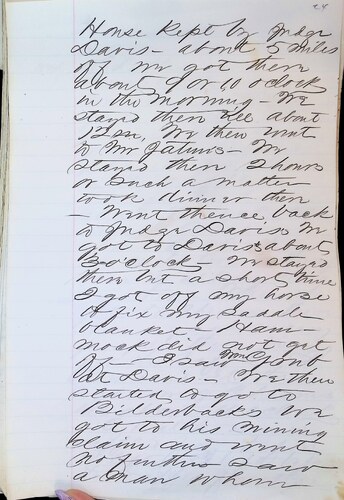 24
House Kept by Judge
Davis - about 5 miles
off we got there
about 9 or 10 oclock
in the morning - We
stayed there till about
12 m, We then went
to Mr - We
stayed there 2 hours
or such a matter
took dinner there
- Went thence back
to Judge Davis We
got to Davis about
3 oclock - We stayed
there but a short time
I got off my horse
to fix my saddle
blanket - Ham-
mock did not get
off - I saw
at Davis - We then
started to go to
Bilderbacks We
got to his mining
claim and went
no further I saw
a man whom